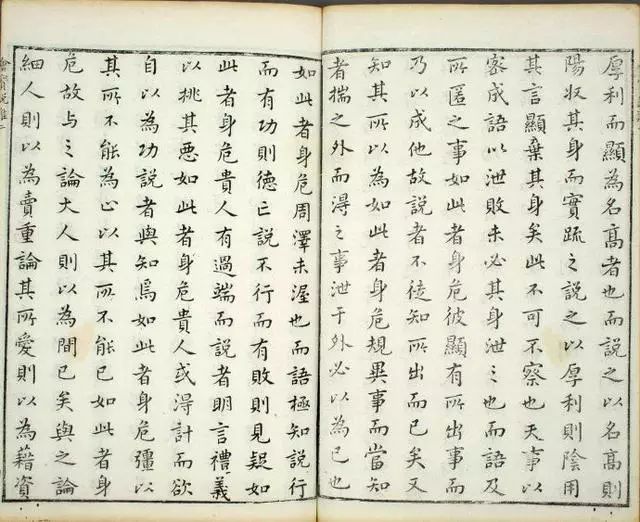 厚利而顯為名高者也而說之以名高則
陽収其身而實疏之說之以厚利則陰用
其言顯棄其身矣此不可不察也夫事以
宻成語以泄敗未必其身泄之也而語及
所匿之事如此者身危彼顯有所出事而
乃以成他故說者不徒知所出而已矣又
知其所以為如此者身危規異事而當知
者揣之外而淂之事泄于外必以為已也
如此者身危周澤未渥也而語極知說行
而有功則德亡說不行而有敗則見疑如
此者身危貴人有過端而說者明言禮義
以挑其悪如此者身危貴人或淂計而欲
自以為功說者與知焉如此者身危彊以
其所不能為止以其所不能已如此者身
危故与之論大人則以為間已矣與之論
細人則以為賣重論其所愛則以為藉資